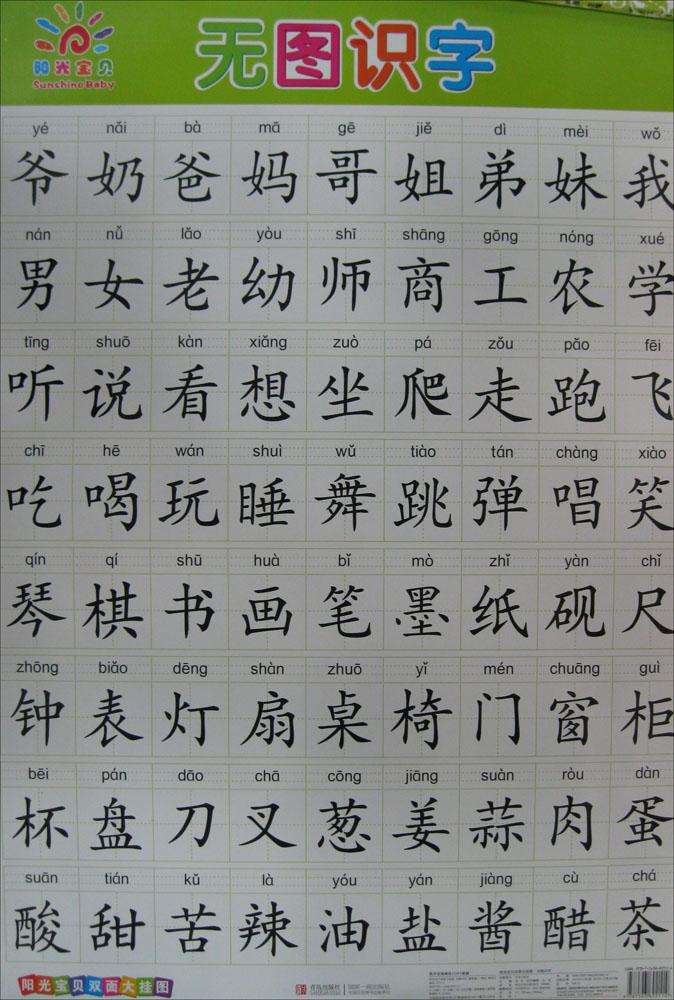 阳光宝贝
Sunshine Baby
无图识字
yé nǎi bà mā gē jiě dì mèi wǒ
爷 奶 爸 妈 哥 姐 弟 妹 我
nán nǚ lǎo yòu shī shāng gōng nóng xué
男 女 老 幼 师 商 工 农 学
tīng shuō kàn xiǎng zuò pá zǒu pǎo fēi
听 说 看 想 坐 爬 走 跑 飞
chī hē wán shuì wǔ tiào tán chàng xiào
吃 喝 玩 睡 舞 跳 弹 唱 笑
qín qí shū huà bǐ mò zhǐ yàn chǐ
琴 棋 书 画 笔 墨 纸 砚 尺
zhōng biǎo dēng shàn zhuō yǐ mén chuāng guì
钟 表 灯 扇 桌 椅 门 窗 柜
bēi pán dāo chā cōng jiāng suàn ròu dàn
杯 盘 刀 叉 葱 姜 蒜 肉 蛋
suān tián kǔ là yóu yán jiàng cù chá
酸 甜 苦 辣 油 盐 酱 醋 茶
阳光宝贝双面大挂图
青岛出版社